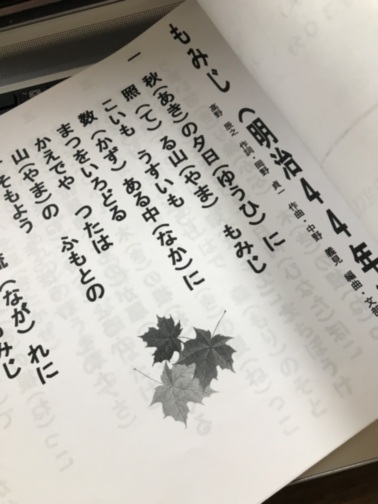 もみじ (明治44年
高野 辰之 作詞・岡野 貞一 作曲・中野 義見 編曲・文部
一
秋(あき)の夕日(ゆうひ)に
照(て)る山(やま) もみじ
こいも うすいも
数(かず) ある中(なか)に
まつをいろどる
かえでや つたは
山(やま)の ふもとの
すそもよう
流(なが)れに
もみじ